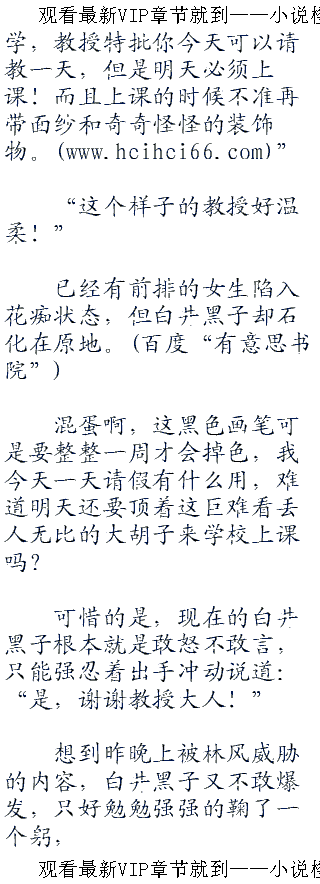 观看最新VIP章节就到——小说检
学，教授特批你今天可以请
教一天，但是明天必须上
课！而且上课的时候不准再
带面纱和奇奇怪怪的装饰
物。(www.hcihci66.com)”
“这个样子的教授好温
柔！”
已经有前排的女生陷入
花痴状态，但白井黑子却石
化在原地。(百度“有意思书
院”)
混蛋啊，这黑色画笔可
是要整整一周才会掉色，我
今天一天请假有什么用，难
道明天还要顶着这巨难看丢
人无比的大胡子来学校上课
吗？
可惜的是，现在的白井
黑子根本就是敢怒不敢言，
只能强忍着出手冲动说道：
“是，谢谢教授大人！”
想到昨晚上被林风威胁
的内容，白井黑子又不敢爆
发，只好勉勉强强的鞠了一
个躬，
观看最新VIP章节就到——小说检